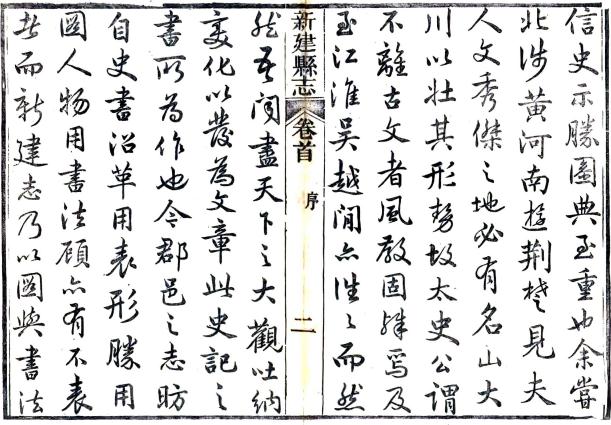 信史示勝圖典至重也余嘗
北涉黄河南遊荆楚見夫
人文秀傑之地必有名山大
川以壮其形勢故太史公謂
不離古文者風教固殊焉及
至江淮吴越間亦往〻而然
新建縣志 卷首 序 二
然吾聞盡天下之大觀吐納
變化以發為文章此史記之
書所為作也今郡邑之志昉
自史書沿革用表形勝用
圖人物用書法顧亦有不表
者而新建志乃以圖與書法